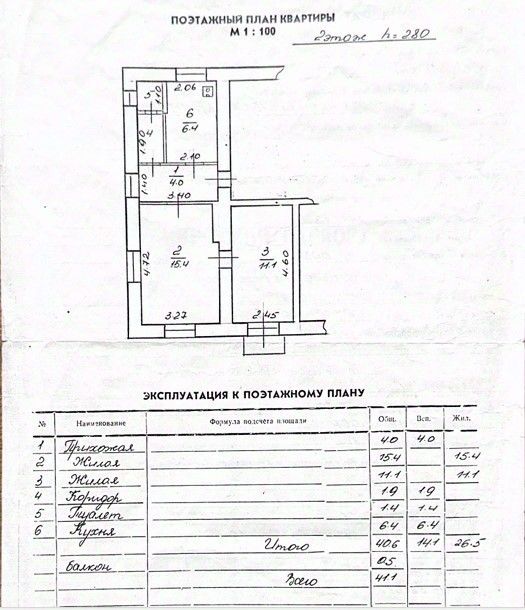 ПОЭТАЖНЫЙ ПЛАН КВАРТИРЫ
М 1 : 100
2этаж h=280
2.06
5
1.10
6
6.4
4
1.90
2.10
1
4.0
1.40
3.40
2
15.4
4.72
3.27
3
11.1
4.60
2.45
ЭКСПЛУАТАЦИЯ К ПОЭТАЖНОМУ ПЛАНУ
№ Наименование Формула подсчёта площади Общ. Всп. Жил.
1 Прихожая 4.0 4.0
2 Жилая 15.4 15.4
3 Жилая 11.1 11.1
4 Коридор 1.9 1.9
5 Туалет 1.4 1.4
6 Кухня 6.4 6.4
Итого 40.6 14.1 26.5
балкон 0.5
Всего 41.1